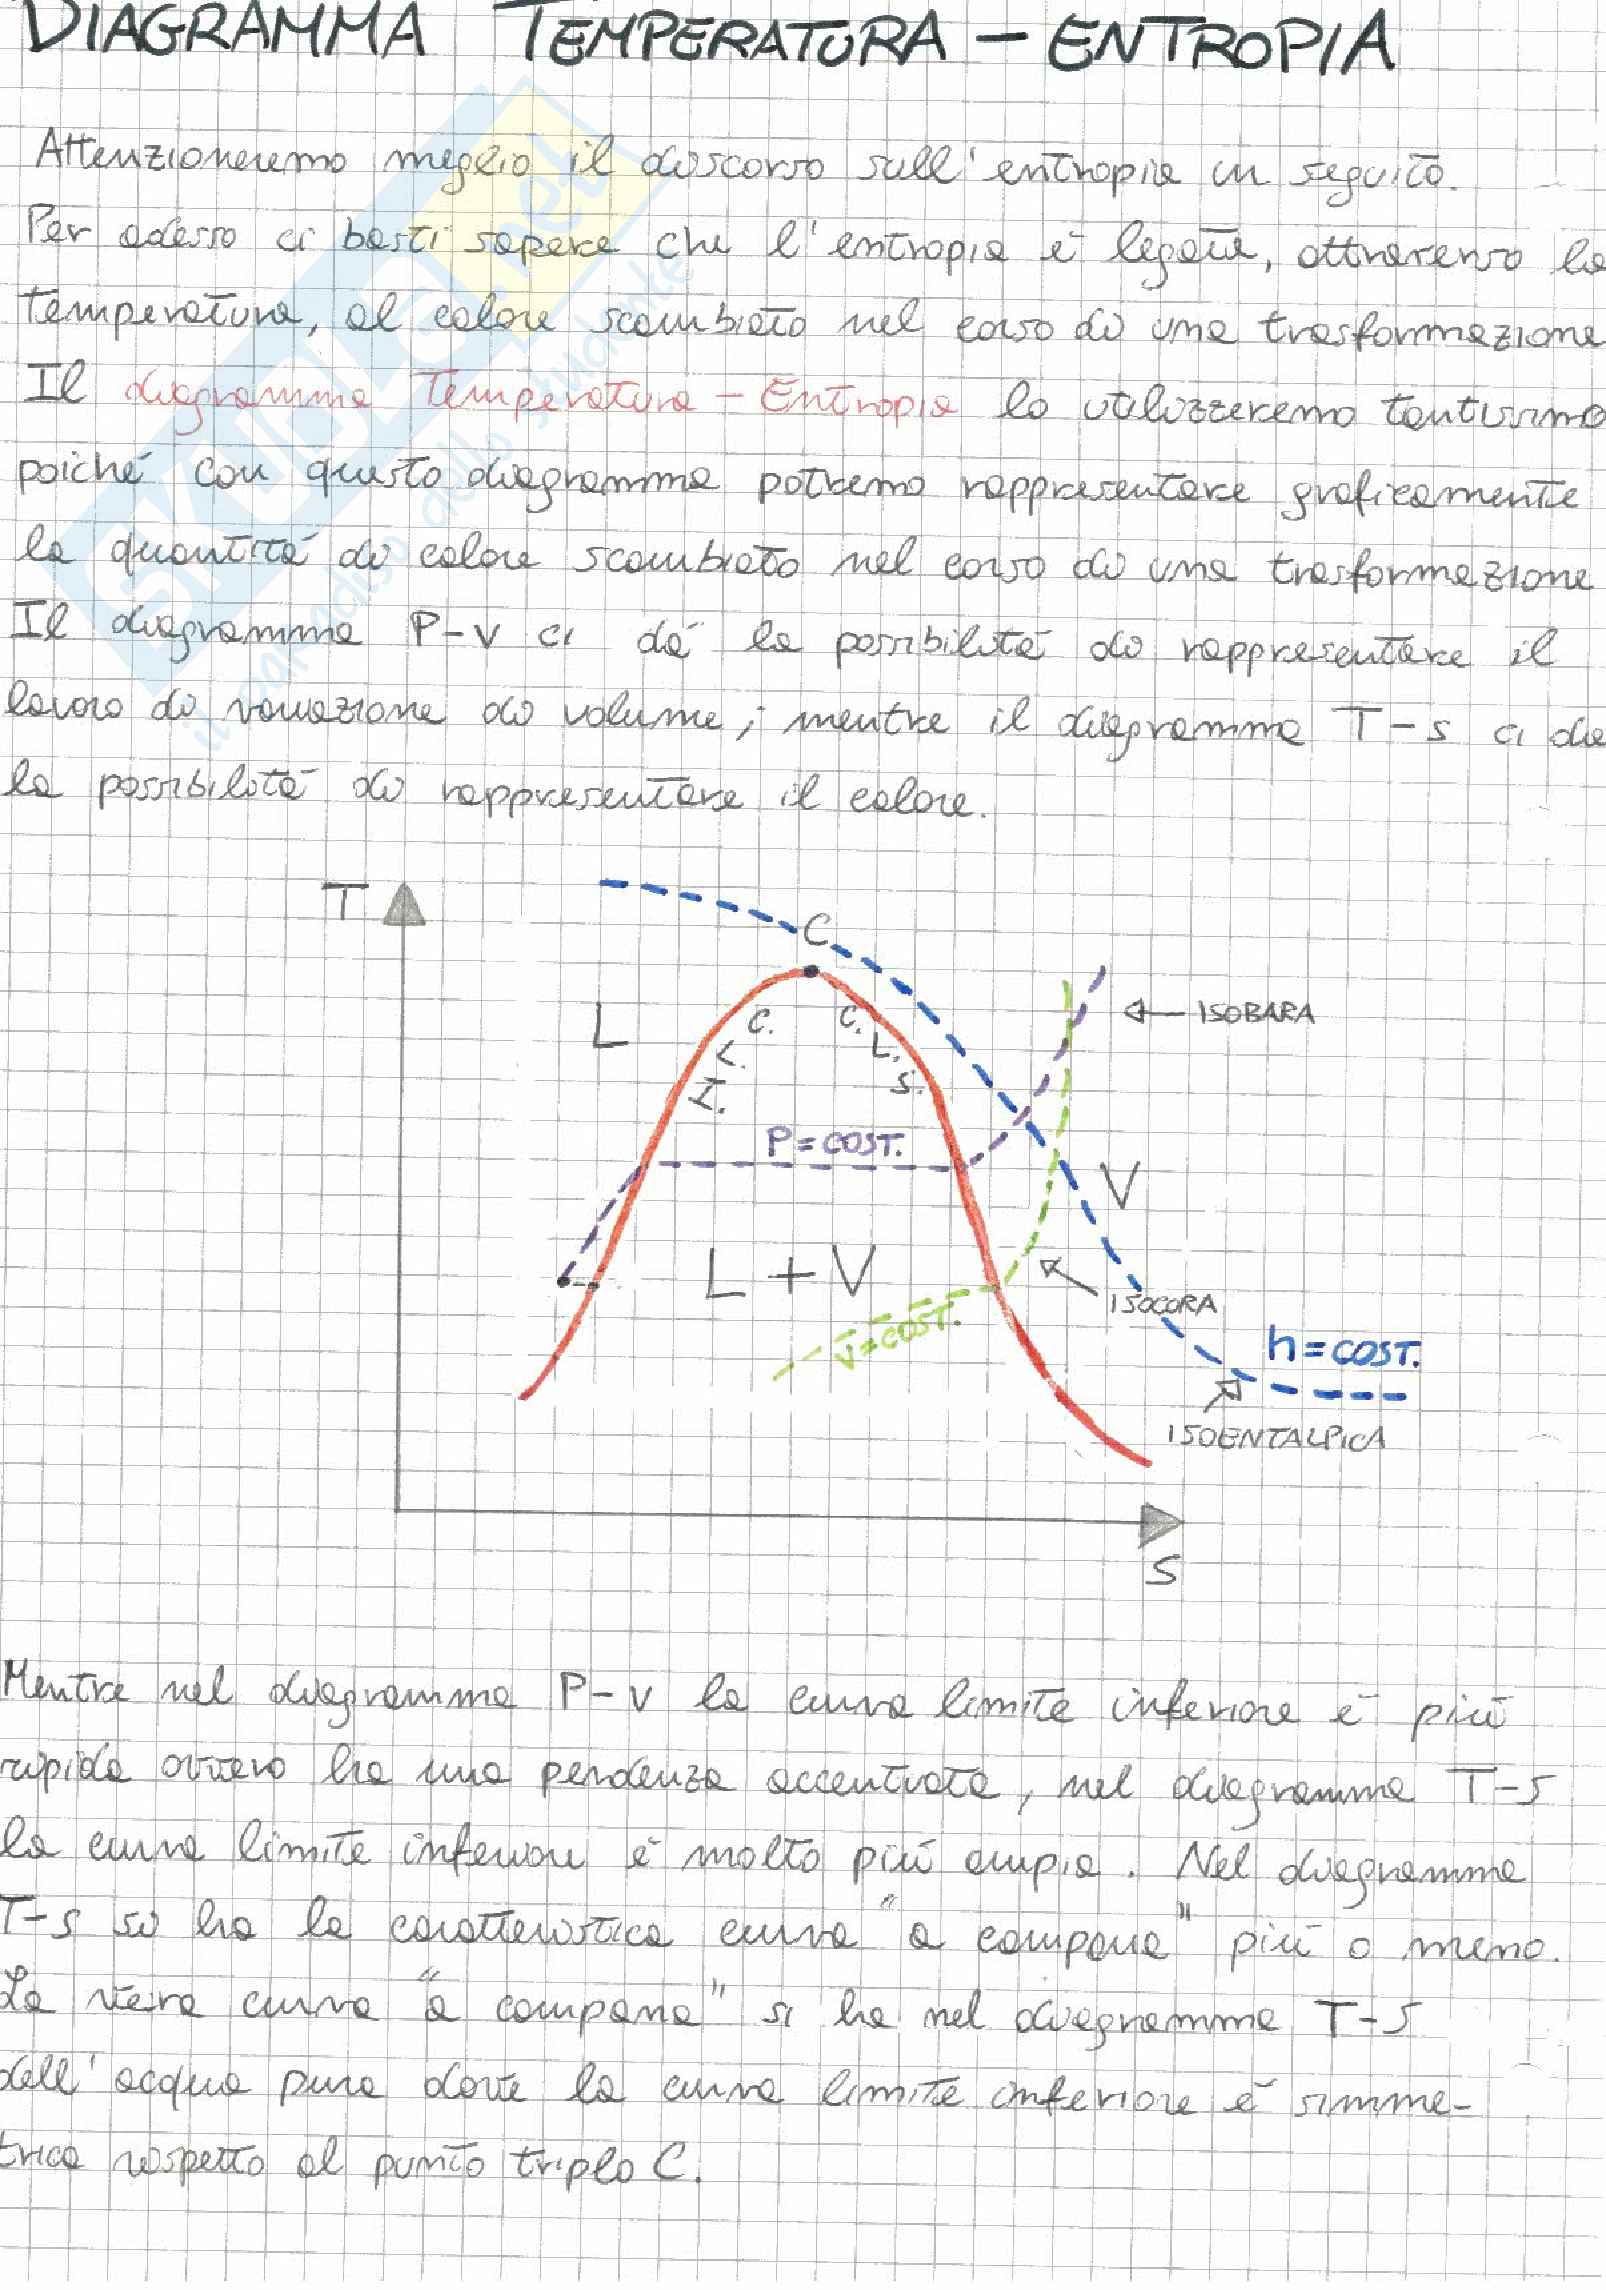 DIAGRAMMA TEMPERATURA - ENTROPIA
Attenzioneremo meglio il discorso sull'entropia in seguito.
Per adesso ci basti sapere che l'entropia è legata, attraverso la
temperatura, al calore scambiato nel corso di una trasformazione
Il diagramma Temperatura - Entropia lo utilizzeremo tantissimo
poiché con questo diagramma potremo rappresentare graficamente
la quantità di calore scambiato nel corso di una trasformazione
Il diagramma P-V ci dà la possibilità di rappresentare il
lavoro di variazione di volume; mentre il diagramma T-s ci da
la possibilità di rappresentare il calore.
T
C
L
C.
C.
ISOBARA
L.
L.
I.
S.
P=COST.
V
L+V
ISOCORA
v=COST.
h=COST.
ISOENTALPICA
S
Mentre nel diagramma P-V la curva limite inferiore è più
ripida ovvero ha una pendenza accentuata, nel diagramma T-S
la curva limite inferiore è molto più ampia. Nel diagramma
T-s si ha la caratteristica curva "a campana" più o meno.
La vera curva "a campana" si ha nel diagramma T-S
dell'acqua pura dove la curva limite inferiore è simme-
trica rispetto al punto triplo C.
SKUOLA.net
il paradiso dello studente